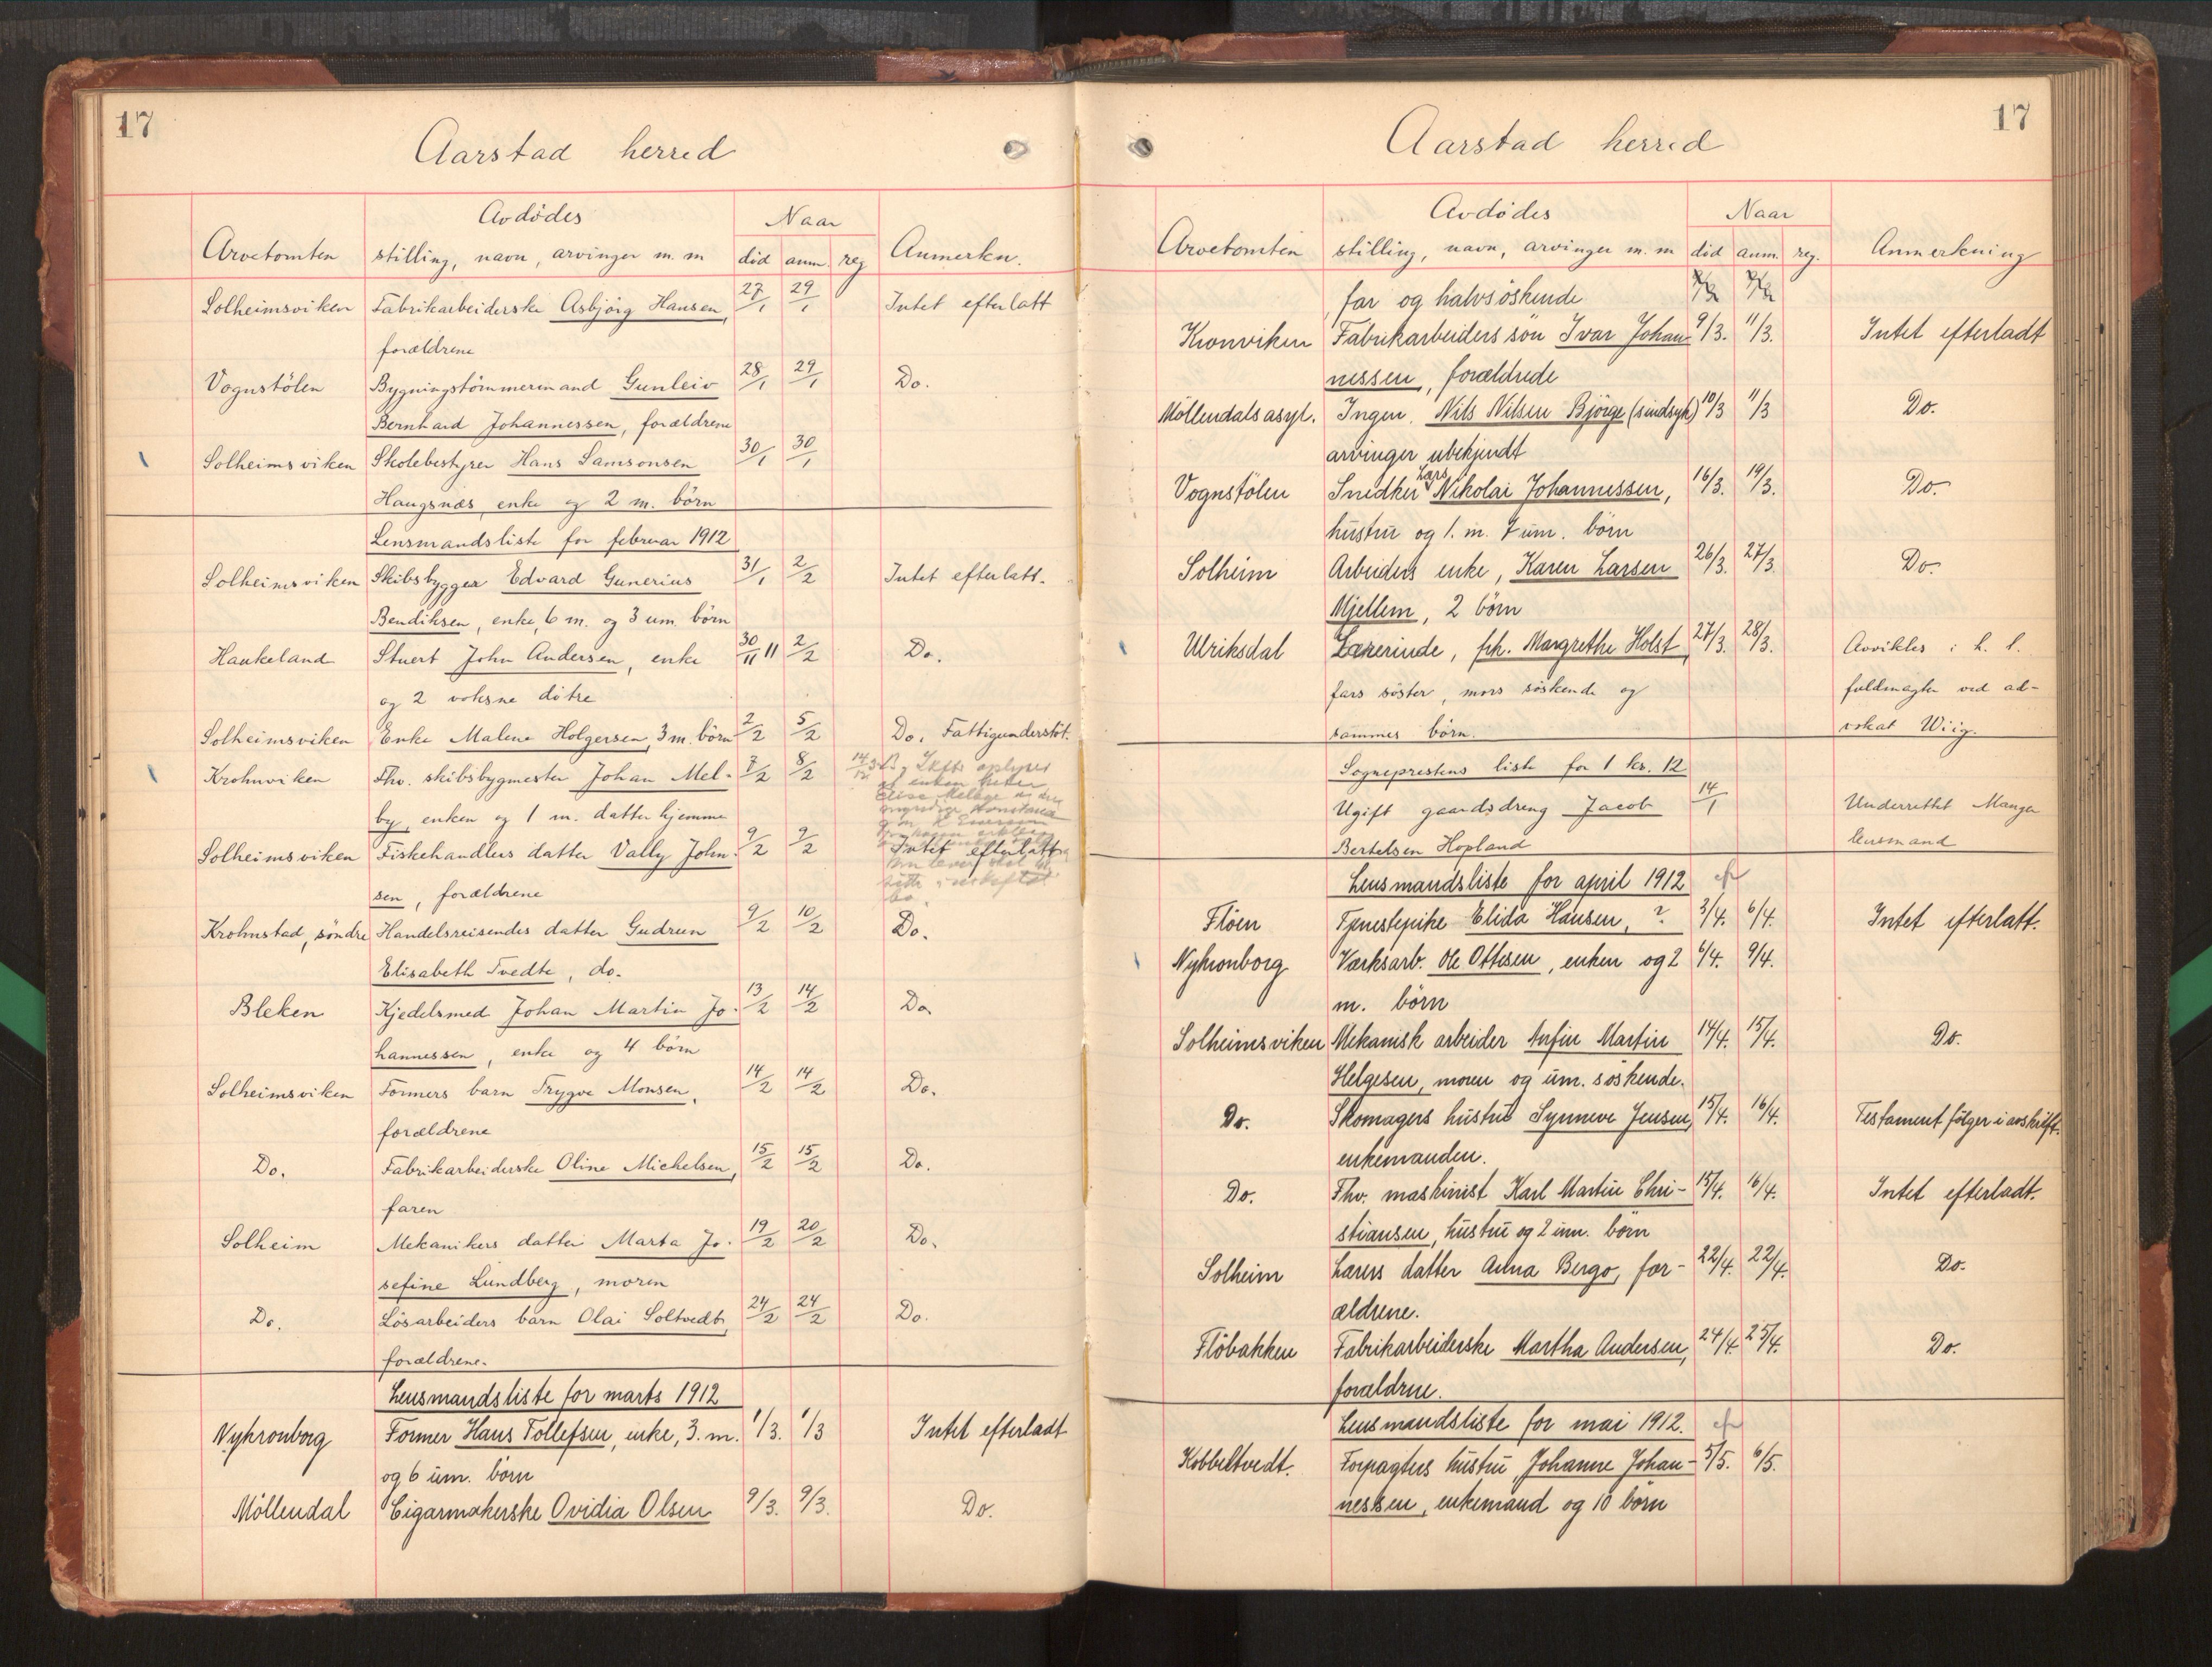 17
Aarstad herred
Avdödes
Naar
Arvetomten stilling, navn, arvinger m. m död anm. reg Anmerkn.
Solheimsviken Fabrikarbeiderske Asbjörg Hansen, 27/1 29/1 Intet efterlatt
forældrene
Vognstölen Bygningstömmermand Gunleiv 28/1 29/1 Do.
Bernhard Johannessen, forældrene
Solheimsviken Skolebestyrer Hans Samsonsen 30/1 30/1
Haugsnæs enke og 2 m. börn
Lensmandsliste for februar 1912
Solheimsviken Skibsbygger Edvard Gunerius 31/1 2/2 Intet efterlatt.
Bendiksen, enke, 6 m. og 3 um. börn
Haukeland Stuert John Andersen, enke 30/11 11 2/2 Do.
og 2 voksne dötre
Solheimsviken Enke Malene Holgersen, 3 m. börn 2/2 5/2 Do. Fattigunderstöt.
Krohnviken Fhv. skibsbygmester Johan Mel- 7/2 8/2
by, enken og 1 m. datter hjemme
Solheimsviken Fiskehandlers datter Vally John- 9/2 9/2 Intet efterlatt
sen, forældrene
Krohnstad, söndre Handelsreisendes datter Gudrun 9/2 10/2 Do.
Elisabeth Tvedte, do.
Bleken Kjedelsmed Johan Martin Jo- 13/2 14/2 Do.
hannessen, enke og 4 börn
Solheimsviken Formers barn Trygve Monsen, 14/2 14/2 Do.
forældrene
Do. Fabrikarbeiderske Oline Michelsen, 15/2 15/2 Do.
faren
Solheim Mekanikers datter Marta Jo- 19/2 20/2 Do.
sefine Lundberg, moren
Do. Lösarbeiders barn Olai Soltvedt, 24/2 24/2 Do.
forældrene.
Lensmandsliste for marts 1912
Nykronborg Former Hans Tollefsen, enke, 3. m. 1/3. 1/3 Intet efterladt
og 6 um. börn
Möllendal Cigarmakerske Ovidia Olsen 9/3. 9/3. Do.
17
Aarstad herred
Avdödes
Naar
Arvetomten stilling, navn, arvinger m. m död anm. reg. Anmerkning
far og halvsöskende
Kronviken Fabrikarbeiders sön Ivar Johan- 9/3. 11/3. Intet efterladt
nessen, forældrede
Möllendals asyl. Ingen. Nils Nilsen Björge (sindsyk) 10/3 11/3 Do.
arvinger ubekjendt
Lars
Vognstölen Snedker Nikolai Johannessen, 16/3. 19/3. Do.
hustru og 1. m. 7 um. börn
Solheim Arbeiders enke, Karen Larsen 26/3. 27/3. Do.
Mjellem, 2 börn
Ulriksdal Lærerinde, frk. Margrethe Holst, 27/3. 28/3. Avvikles i h. l.
fars söster, mors söskende og fuldmagter ved ad-
sammes börn. vokat Wiig.
Sogneprestens liste for 1 kv. 12
Ugift gaardsdreng Jacob 14/1 Underrettet Manger
Bertelsen Hopland lensmand
Lensmandsliste for april 1912
Flöen Tjenestepike Elida Hansen, ? 3/4. 6/4. Intet efterlatt.
Nykronborg Værksarb. Ole Ottesen, enken og 2 6/4. 9/4.
m. börn
Solheimsviken Mekanisk arbeider Anfin Martin 14/4. 15/4. Do.
Helgesen, moren og um. söskende.
Do. Skomagers hustru Synneve Jensen, 15/4. 16/4. Testament fölger i avskrift.
enkemanden.
Do. Fhv. maskinist Karl Martin Chri- 15/4. 16/4. Intet efterladt.
stiansen, hustru og 2 um. börn
Solheim Lærers datter Anna Bergo, for- 22/4. 22/4. Do.
ældrene.
Flöbakken Fabrikarbeiderske Martha Andersen, 24/4. 25/4. Do.
forældrne.
Lensmandsliste for mai 1912.
Kobbeltvedt. Forpagters hustru Johanne Johan- 5/5. 6/5.
nessen, enkemand og 10 börn